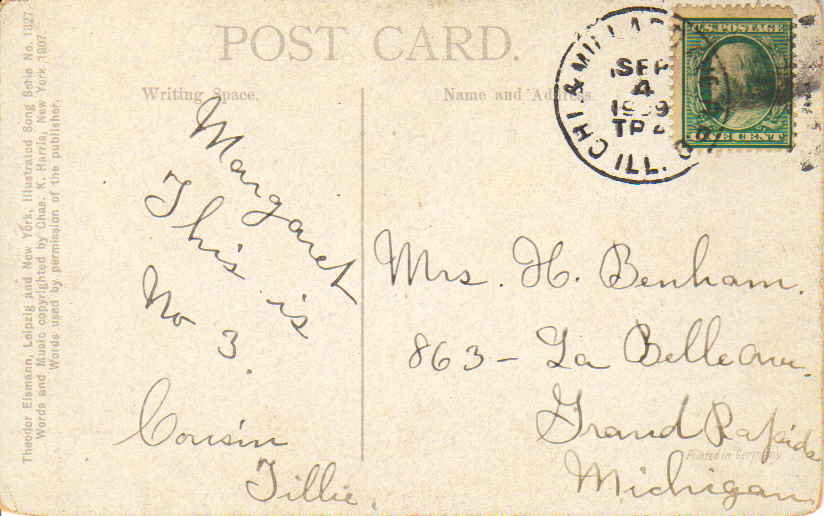 POST CARD.
Writing Space.
Name and Address.
Theodor Eismann, Leipzig and New York, Illustrated Song Serie No. 1827.
Words and Music copyrighted by Chas. K. Harris, New York 1907.
Words used by permission of the publisher.
CHI. & MIL
SEP
4
ILL.
U.S. POSTAGE
ONE CENT
Margaret
This is
No 3.
Cousin
Tillie.
Mrs. H. Benham.
863 - La Belle Ave.
Grand Rapids
Printed in Germany
Michigan